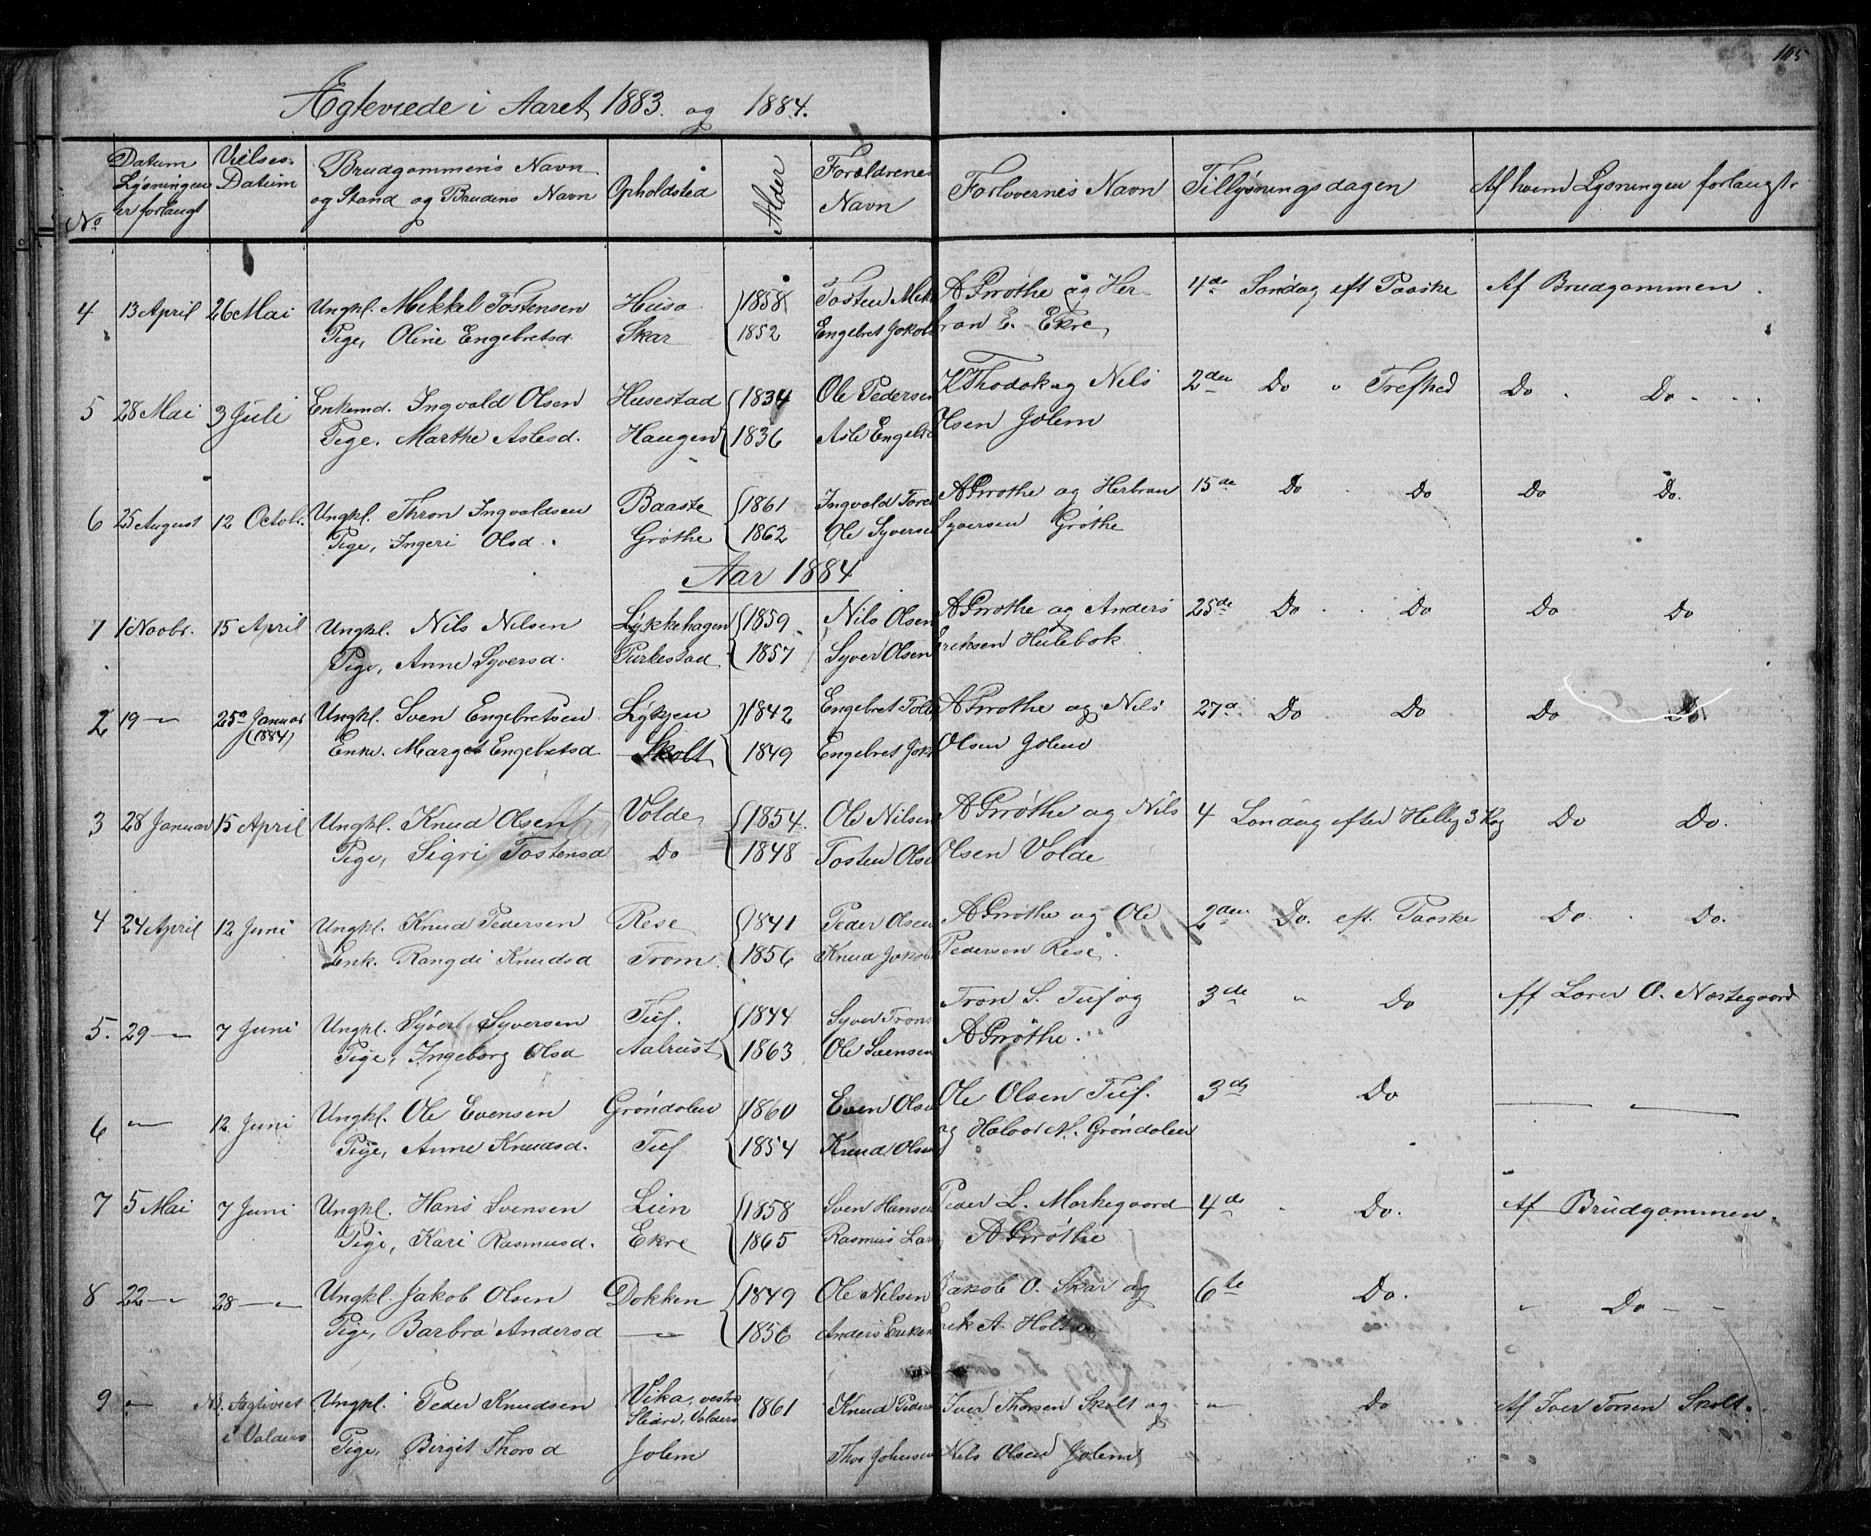 105
Ægteviede i Aaret 1883 og 1884.
No
Datum Lysningen er forlangt
Vielses-Datum
Brudgommens Navn og Stand og Brudens Navn
Opholdsted
Alder
Forældrenes Navn
Forlovernes Navn
Tillysningsdagen
Af hvem Lysningen forlangt
4 13 April 26 Mai Ungkl. Mekkel Tostensen Huso 1858 Tosten Mek A Grøthe og Her- 4de Søndag eft Paaske Af Brudgommen.
Pige, Oline Engebretsd. Skar 1852 Engebret Jakob bran E. Ekre
5 28 Mai 3 Juli Enkemd. Ingvald Olsen Husestad 1834 Ole Pedersen K Thodok og Nils 2den Do " Trefhed Do Do
Pige. Marthe Aslesd. Haugen 1836 Asle Engebr Olsen Jølem
6 25 August 12 Octob. Ungkl. Thron Ingvaldsen Baaste 1861 Ingvald Tore A Grøthe og Herbran 15de Do Do Do Do.
Pige, Ingeri Olsd. Grøthe 1862 Ole Syversen Syversen Grøthe
Aar 1884
1 1 Novbr. 15 April Ungkl. Nils Nilsen Lykkehagen 1859 Nils Olsen A Grøthe og Anders 25de Do Do Do Do
Pige, Anne Syversd. Purkestad 1857 Syver Olsen Eriksen Hulebok
2 19 — 25de Januar (1884) Ungkl. Sven Engebretsen Lykjen 1842 Engebret Tolle A Grøthe og Nils 27de Do Do Do Do
Enke. Margit Engebretsd Skolt 1849 Engebret Jak Olsen Jølem
3 28 Januar 15 April Ungkl. Knud Olsen Volde 1854. Ole Nilsen A Grøthe og Nils 4 Søndag efter Hellig 3 Kg Do Do.
Pige, Sigri Tostensd Do 1848 Tosten Ols Olsen Volde
4 24 April 12 Juni Ungkl. Knud Pedersen Rese 1841 Peder Olsen A Grøthe og Ole 2den Do. eft. Paaske Do. Do.
Enk. Rangdi Knudsd Trøm 1856 Knud Jakob Pedersen Rese.
5. 29 — 7 Juni Ungkl. Syver Syversen Tuf. 1844 Syver Trons Tron S. Tuf og 3de " Do Af Lærer O. Næstegaard
Pige, Ingeborg Olsd Aalrust 1863 Ole Svensen A Grøthe.
6 — 12 Juni Ungkl. Ole Evensen Grøndalen 1860 Even Olsen Ole Olsen Tuf. 3de Do — —
Pige, Anne Knudsd. Tuf 1854 Knud Olsen og Halvor N. Grøndalen
7 5 Mai 7 Juni Ungkl. Hans Svensen Lien 1858 Sven Hansen Peder L. Markegaard 4de Do. Af Brudgommen.
Pige, Kari Rasmusd. Ekre 1865 Rasmus Lar A Grøthe
8 22 — 28 — Ungkl. Jakob Olsen Dokken 1849 Ole Nilsen Jakob O. Skar og 6te Do. " Do — -
Pige, Barbra Andersd — 1856 Anders Eriksen Erik A. Holt
9 — NB. Ægtiviet i Valders Ungkl. Peder Knudsen Vika, vestre Slidre, Valders 1861 Knud Peders Iver Thorsen Skolt og — Do Af Iver Torsen Skolt.
Pige, Birgit Thorsd Jølem Thor Johnsen Nils Olsen Jølem